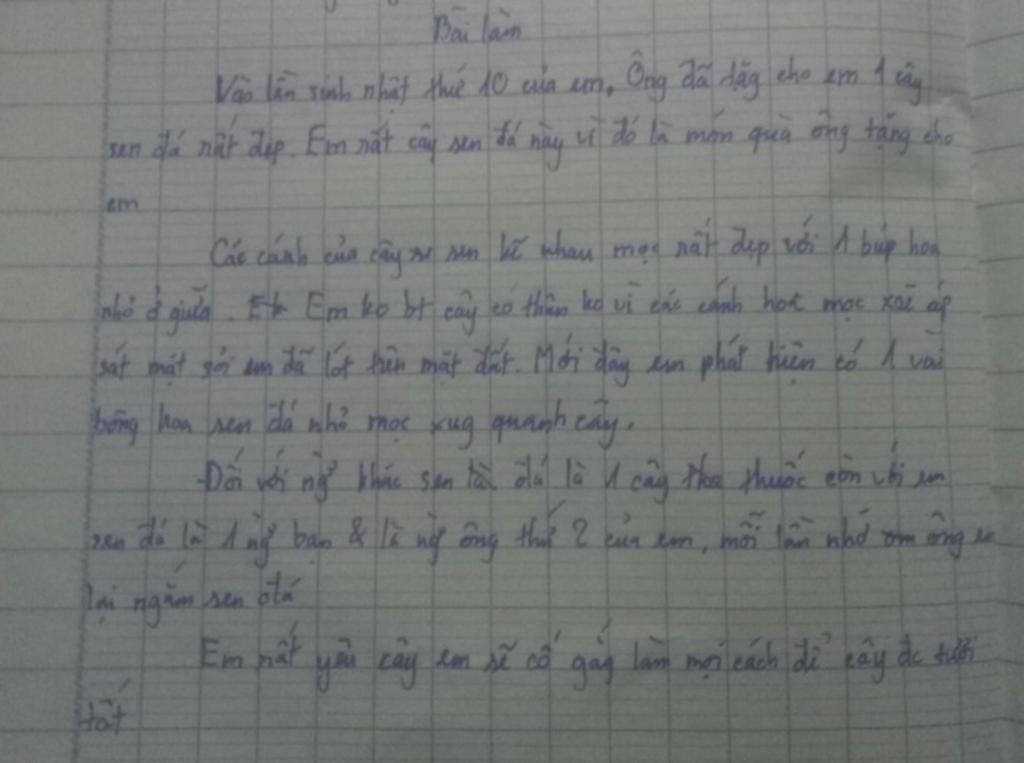 Bài làm
Vào lần sinh nhật thứ 10 của em, Ông đã tặg cho em 1 cây
sen đá rất đẹp. Em rất cây sen đá này vì đó là món quà ông tặng cho
em
Các cánh của cây sen kẽ nhau mọc rất đẹp với 1 búp hoa
nhỏ ở giữa. Em ko bt cây có thân ko vì các cánh hoa mọc xoè áp
sát mặt sỏi em đã lót trên mặt đất. Mới đây em phát hiện có 1 vài
bông hoa sen đá nhỏ mọc xug quanh cây.
Đối với ng khác sen đá là 1 cây thuốc còn với em
sen đá là 1 ng bạn & là ng ông thứ 2 của em, mỗi lần nhớ ông em
lại ngắm sen đá
Em rất yêu cây em sẽ cố gắg làm mọi cách để cây đc tươi
tốt